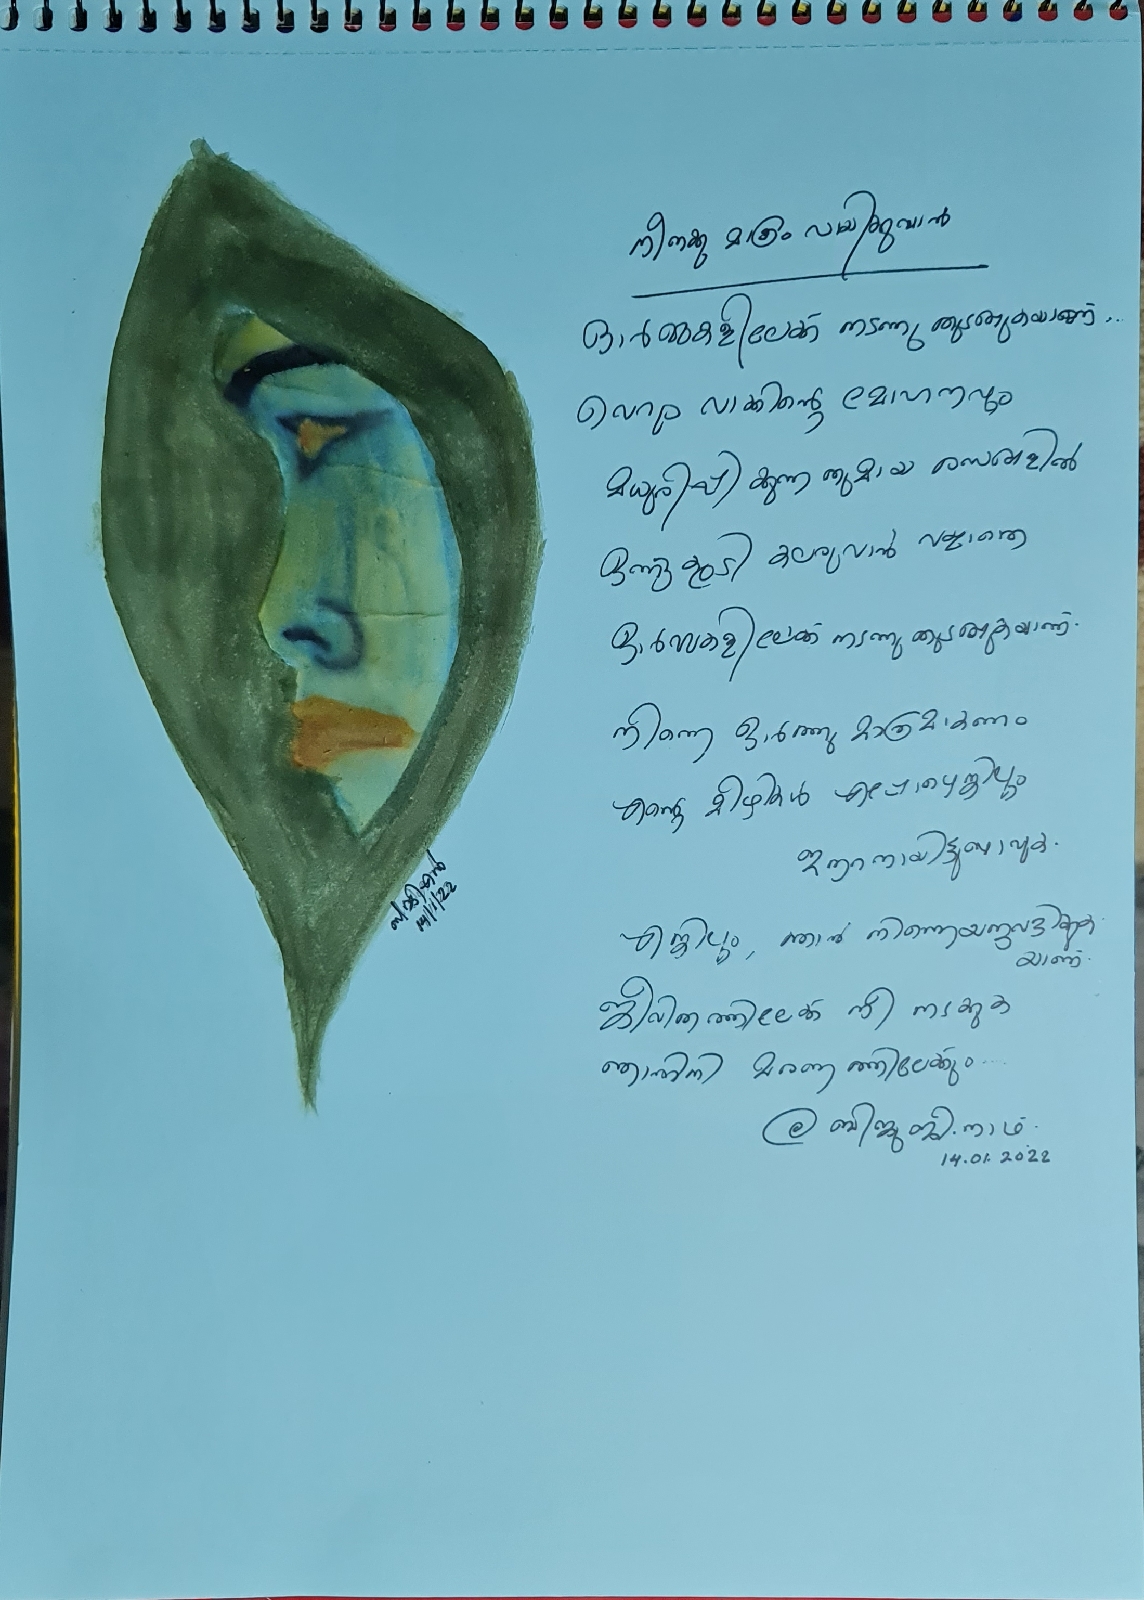 നിനക്കു മാത്രം വായിക്കുവാൻ
ഓർമ്മകളിലേക്ക് നടന്നു തുടങ്ങുകയാണ്...
വെറും വാക്കിന്റെ മോഹനവും
മധുരിപ്പിക്കുന്നതുമായ രസങ്ങളിൽ
ഒന്നുകൂടി കലരുവാൻ വയ്യാതെ
ഓർമ്മകളിലേക്ക് നടന്നു തുടങ്ങുകയാണ്.
നിന്നെ ഓർത്തു മാത്രമാകണം
എന്റെ മിഴികൾ എപ്പോഴെങ്കിലും
ഈറനായിട്ടുണ്ടാവുക.
എങ്കിലും, ഞാൻ നിന്നെയനുവദിക്കുക
യാണ്.
ജീവിതത്തിലേക്ക് നീ നടക്കുക
ഞാനിനി മരണത്തിലേക്കും....
@ ബിജു ജി. നാഥ്.
14.01.2022
14/1/22